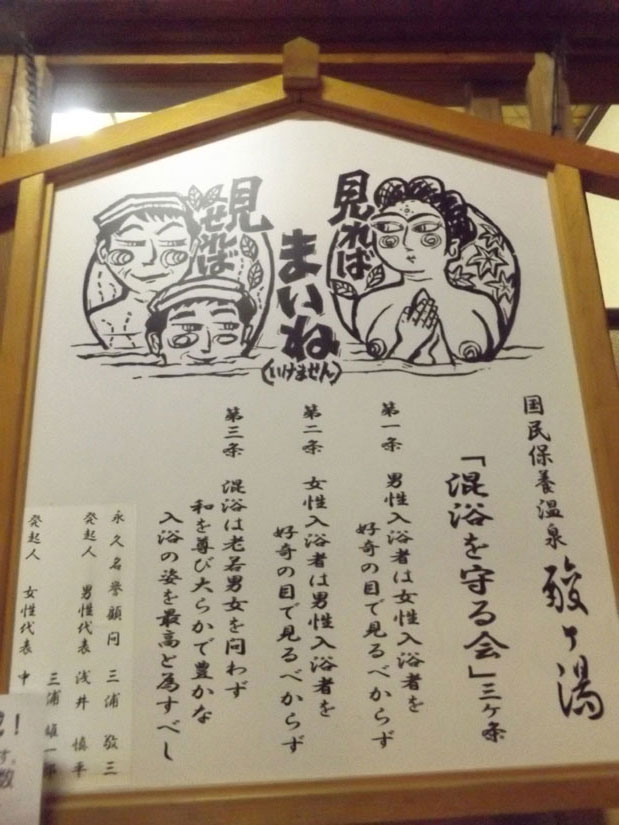 見れば
見せれば
まいね
(いけません)
国民保養温泉 酸ヶ湯
「混浴を守る会」三ヶ条
第一条 男性入浴者は女性入浴者を
好奇の目で見るべからず
第二条 女性入浴者は男性入浴者を
好奇の目で見るべからず
第三条 混浴は老若男女を問わず
和を尊び大らかで豊かな
入浴の姿を最高と為すべし
永久名誉顧問 三浦 敬三
三浦 雄一郎
発起人 男性代表 浅井 慎平
発起人 女性代表 中
！
す。
数